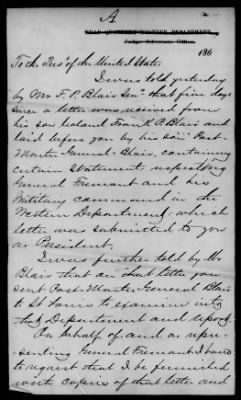 A
Judge Advocate Office,
186
To the Pres't of the United States
I was told yesterday
by Mr F. P. Blair Sen'r that five days
since a letter was received from
his son Colonel Frank P. Blair and
laid before you by his son Post-
Master General Blair, containing
certain statements respecting
General Fremont and his
Military command in the
Western Department; which
letter was submitted to you
as President.
I was further told by Mr
Blair that on that letter you
sent Post-Master General Blair
to St Louis to examine into
that Department and report.
On behalf of, and as repre-
-senting General Fremont I have
to request that I be furnished
with copies of that letter and